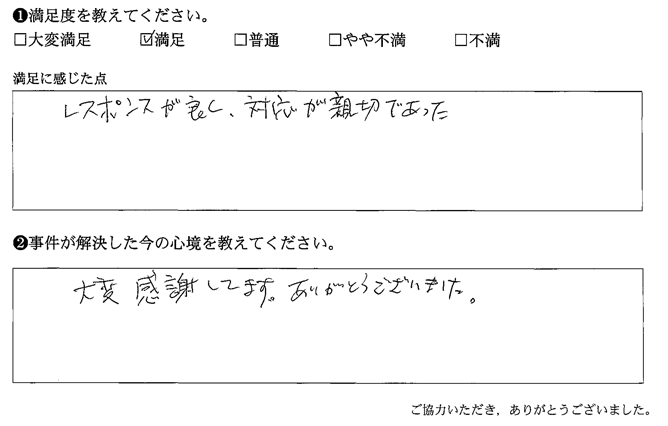 ❶満足度を教えてください。
□大変満足 ☑満足 □普通 □やや不満 □不満
満足に感じた点
レスポンスが良く、対応が親切であった
❷事件が解決した今の心境を教えてください。
大変感謝してます。ありがとうございました。
ご協力いただき，ありがとうございました。